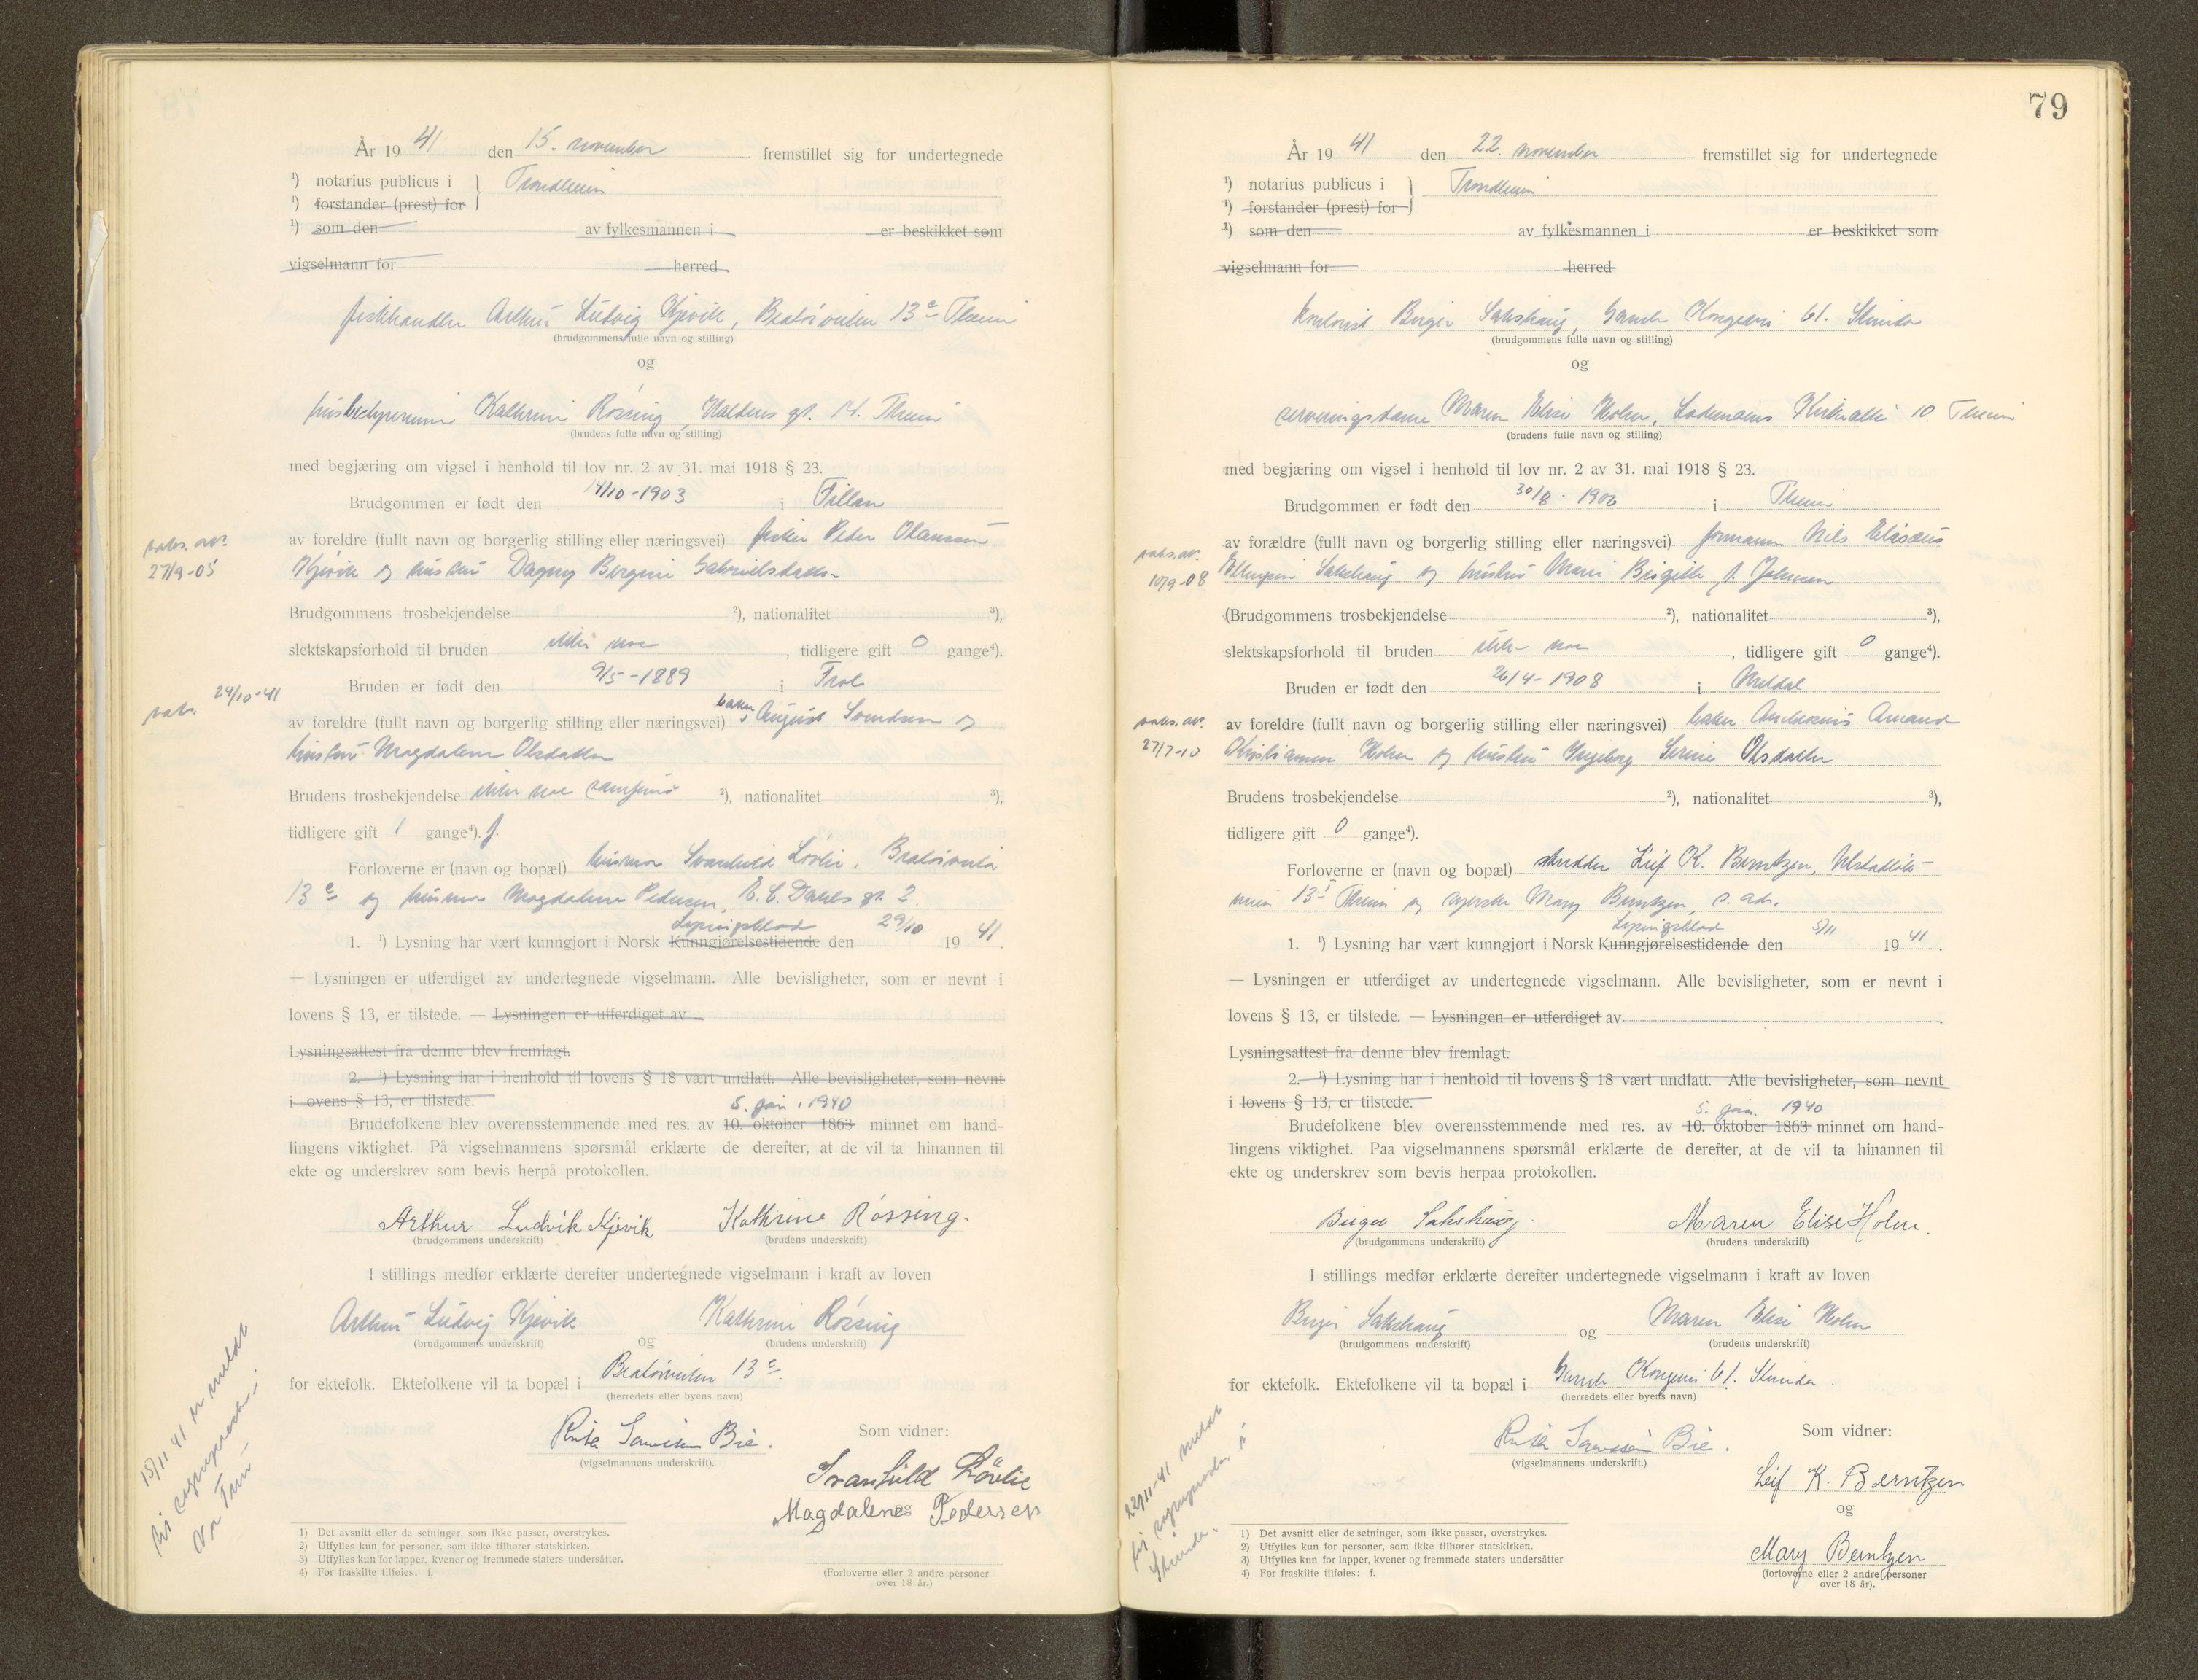 År 19 41 den 15. november fremstillet sig for undertegnede
¹) notarius publicus i } Trondheim
¹) forstander (prest) for
¹) som den av fylkesmannen i er beskikket som
vigselmann for herred
fiskhandler Arthur Ludvig Kjevik, Bratørveiten 13 c Theim
(brudgommens fulle navn og stilling)
og
husbestyrerinne Kathrine Røssing, Kalvens gt. 14. Theim
(brudens fulle navn og stilling)
med begjæring om vigsel i henhold til lov nr. 2 av 31. mai 1918 § 23.
Brudgommen er født den 14/10-1903 i Fillan
pabs. av. av foreldre (fullt navn og borgerlig stilling eller næringsvei) fisker Peder Olaussen
27/9-05 Kjevik og hustru Dagny Bergine Gabrielsdatter
Brudgommens trosbekjendelse ²), nationalitet ³),
slektskapsforhold til bruden ikke noe, tidligere gift 0 gange⁴).
Bruden er født den 9/5-1889 i Frol
pabs. 24/10-41 av foreldre (fullt navn og borgerlig stilling eller næringsvei) August Svendsen og
hustru Magdalena Olsdatter
Brudens trosbekjendelse ikke noe samfunn ²), nationalitet ³),
tidligere gift 1 gange⁴). f.
Forloverne er (navn og bopæl) husmor Svanhild Løvlie, Bratørveita
13 c og husmor Magdalene Pedersen, E. C. Dahls gt. 2.
Lysingsblad
1. ¹) Lysning har vært kunngjort i Norsk Kunngjørelsestidende den 29/10 19 41.
— Lysningen er utferdiget av undertegnede vigselmann. Alle bevisligheter, som er nevnt i
lovens § 13, er tilstede. — Lysningen er utferdiget av
Lysningsattest fra denne blev fremlagt.
2. ¹) Lysning har i henhold til lovens § 18 vært undlatt. Alle bevisligheter, som nevnt
i lovens § 13, er tilstede.
5. jan. 1940
Brudefolkene blev overensstemmende med res. av 10. oktober 1863 minnet om hand-
lingens viktighet. På vigselmannens spørsmål erklærte de derefter, at de vil ta hinannen til
ekte og underskrev som bevis herpå protokollen.
Arthur Ludvik Kjevik Kathrine Røssing.
(brudgommens underskrift) (brudens underskrift)
I stillings medfør erklærte derefter undertegnede vigselmann i kraft av loven
Arthur Ludvig Kjevik og Kathrine Røssing
(brudgommens underskrift) (brudens underskrift)
for ektefolk. Ektefolkene vil ta bopæl i Bratørveiten 13 c.
(herredets eller byens navn)
Bie.
(vigselmannens underskrift).
Som vidner:
Svanhild Løvlie
og
Magdalene Pedersen
(Forloverne eller 2 andre personer
over 18 år.)
15/11 41 er meldt
til sogneprest i
Vor Frue
1) Det avsnitt eller de setninger, som ikke passer, overstrykes.
2) Utfylles kun for personer, som ikke tilhører statskirken.
3) Utfylles kun for lapper, kvener og fremmede staters undersåtter.
4) For fraskilte tilføies: f.
79
År 19 41 den 22. november fremstillet sig for undertegnede
¹) notarius publicus i } Trondheim
¹) forstander (prest) for
¹) som den av fylkesmannen i er beskikket som
vigselmann for herred
kontorist Birger Sakshaug, Gamle Kongevei 61. Strinda
(brudgommens fulle navn og stilling)
og
serveringsdame Maren Elise Holm, Lademoens Kirkealle 10. Theim
(brudens fulle navn og stilling)
med begjæring om vigsel i henhold til lov nr. 2 av 31. mai 1918 § 23.
Brudgommen er født den 30/8-1906 i Theim
pabs. av. av forældre (fullt navn og borgerlig stilling eller næringsvei) formann Nils Eliseus
10/9-08 Sakshaug og hustru Marie Birgitte f. Johnsen
(Brudgommens trosbekjendelse ²), nationalitet ³),
slektskapsforhold til bruden ikke noe, tidligere gift 0 gange⁴).
Bruden er født den 26/4-1908 i Meldal
pabs. av. av foreldre (fullt navn og borgerlig stilling eller næringsvei) baker Amand
27/7-10 Kristiansen Holm og hustru Ingeborg Serine Olsdatter
Brudens trosbekjendelse ²), nationalitet ³),
tidligere gift 0 gange⁴).
Forloverne er (navn og bopæl) skredder Leif K. Berntzen,
13 I Theim og syerske Mary Berntzen, s. adr.
Lysingsblad
1. ¹) Lysning har vært kunngjort i Norsk Kunngjørelsestidende den 5/11 19 41.
— Lysningen er utferdiget av undertegnede vigselmann. Alle bevisligheter, som er nevnt i
lovens § 13, er tilstede. — Lysningen er utferdiget av
Lysningsattest fra denne blev fremlagt.
2. ¹) Lysning har i henhold til lovens § 18 vært undlatt. Alle bevisligheter, som nevnt
i lovens § 13, er tilstede.
5. jan. 1940
Brudefolkene blev overensstemmende med res. av 10. oktober 1863 minnet om hand-
lingens viktighet. Paa vigselmannens spørsmål erklærte de derefter, at de vil ta hinannen til
ekte og underskrev som bevis herpaa protokollen.
Birger Sakshaug Maren Elise Holm.
(brudgommens underskrift) (brudens underskrift)
I stillings medfør erklærte derefter undertegnede vigselmann i kraft av loven
Birger Sakshaug og Maren Elise Holm
(brudgommens underskrift) (brudens underskrift)
for ektefolk. Ektefolkene vil ta bopæl i Gamle Kongevei 61. Strinda.
(herredets eller byens navn)
Bie.
(vigselmannens underskrift.)
Som vidner:
Leif K. Berntzen
og
Mary Berntzen
(forloverne eller 2 andre personer
over 18 år).
22/11-41 meldt
til sogneprest i
Strinda.
1) Det avsnitt eller de setninger, som ikke passer, overstrykes.
2) Utfylles kun for personer, som ikke tilhører statskirken.
3) Utfylles kun for lapper, kvener og fremmede staters undersåtter
4) For fraskilte tilføies: f.